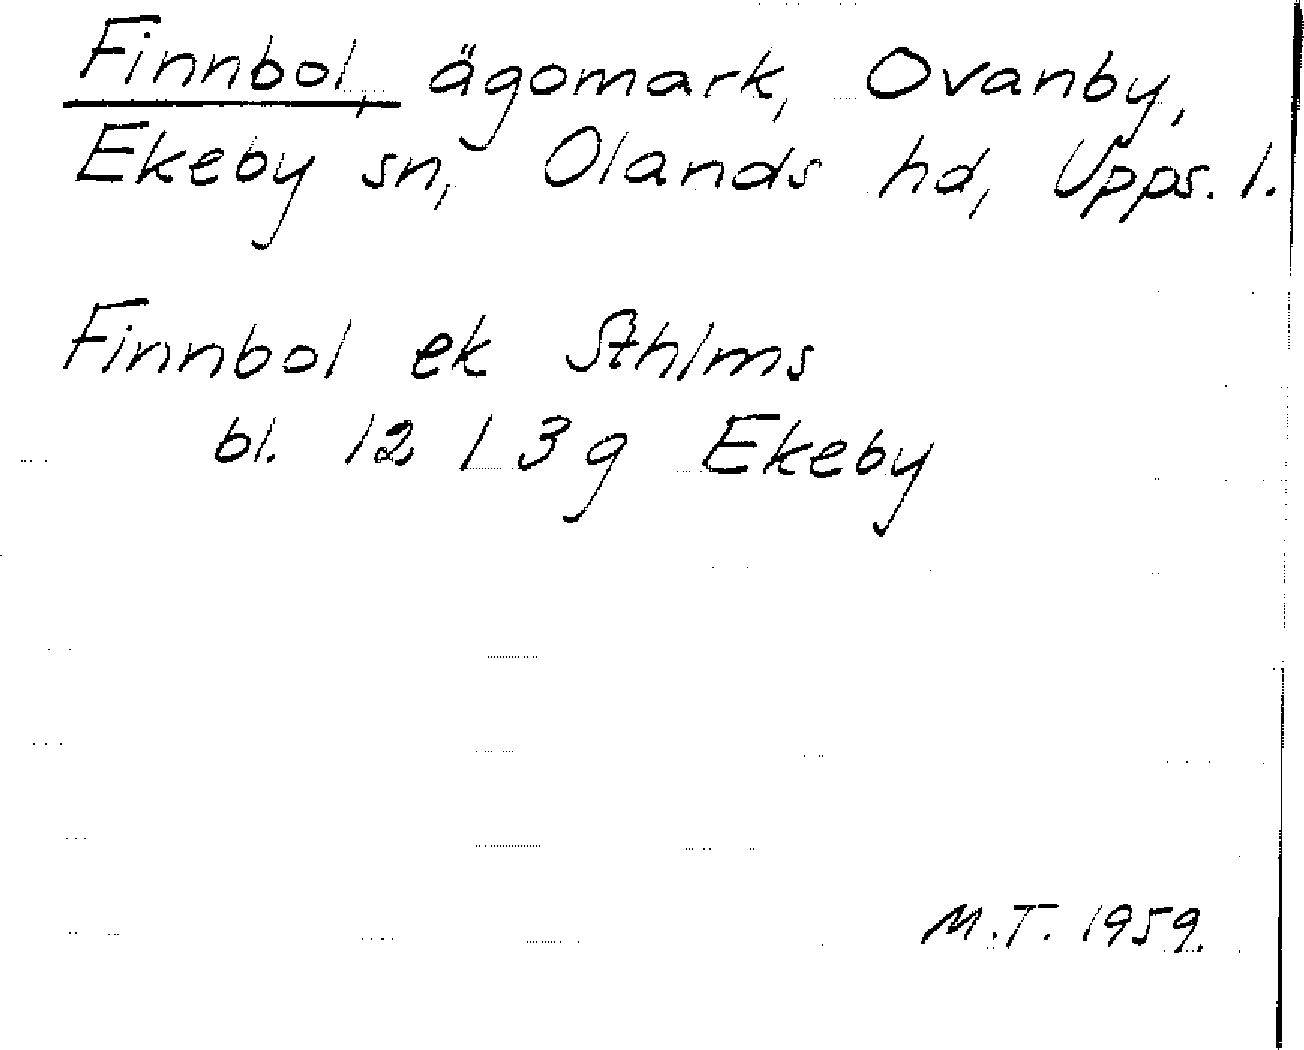 Finnbol, ägomark, Ovanby,
Ekeby sn, Olands hd, Upps. l.
Finnbol ek Sthlms
bl. 12 I 3 g Ekeby
M.T. 1959.